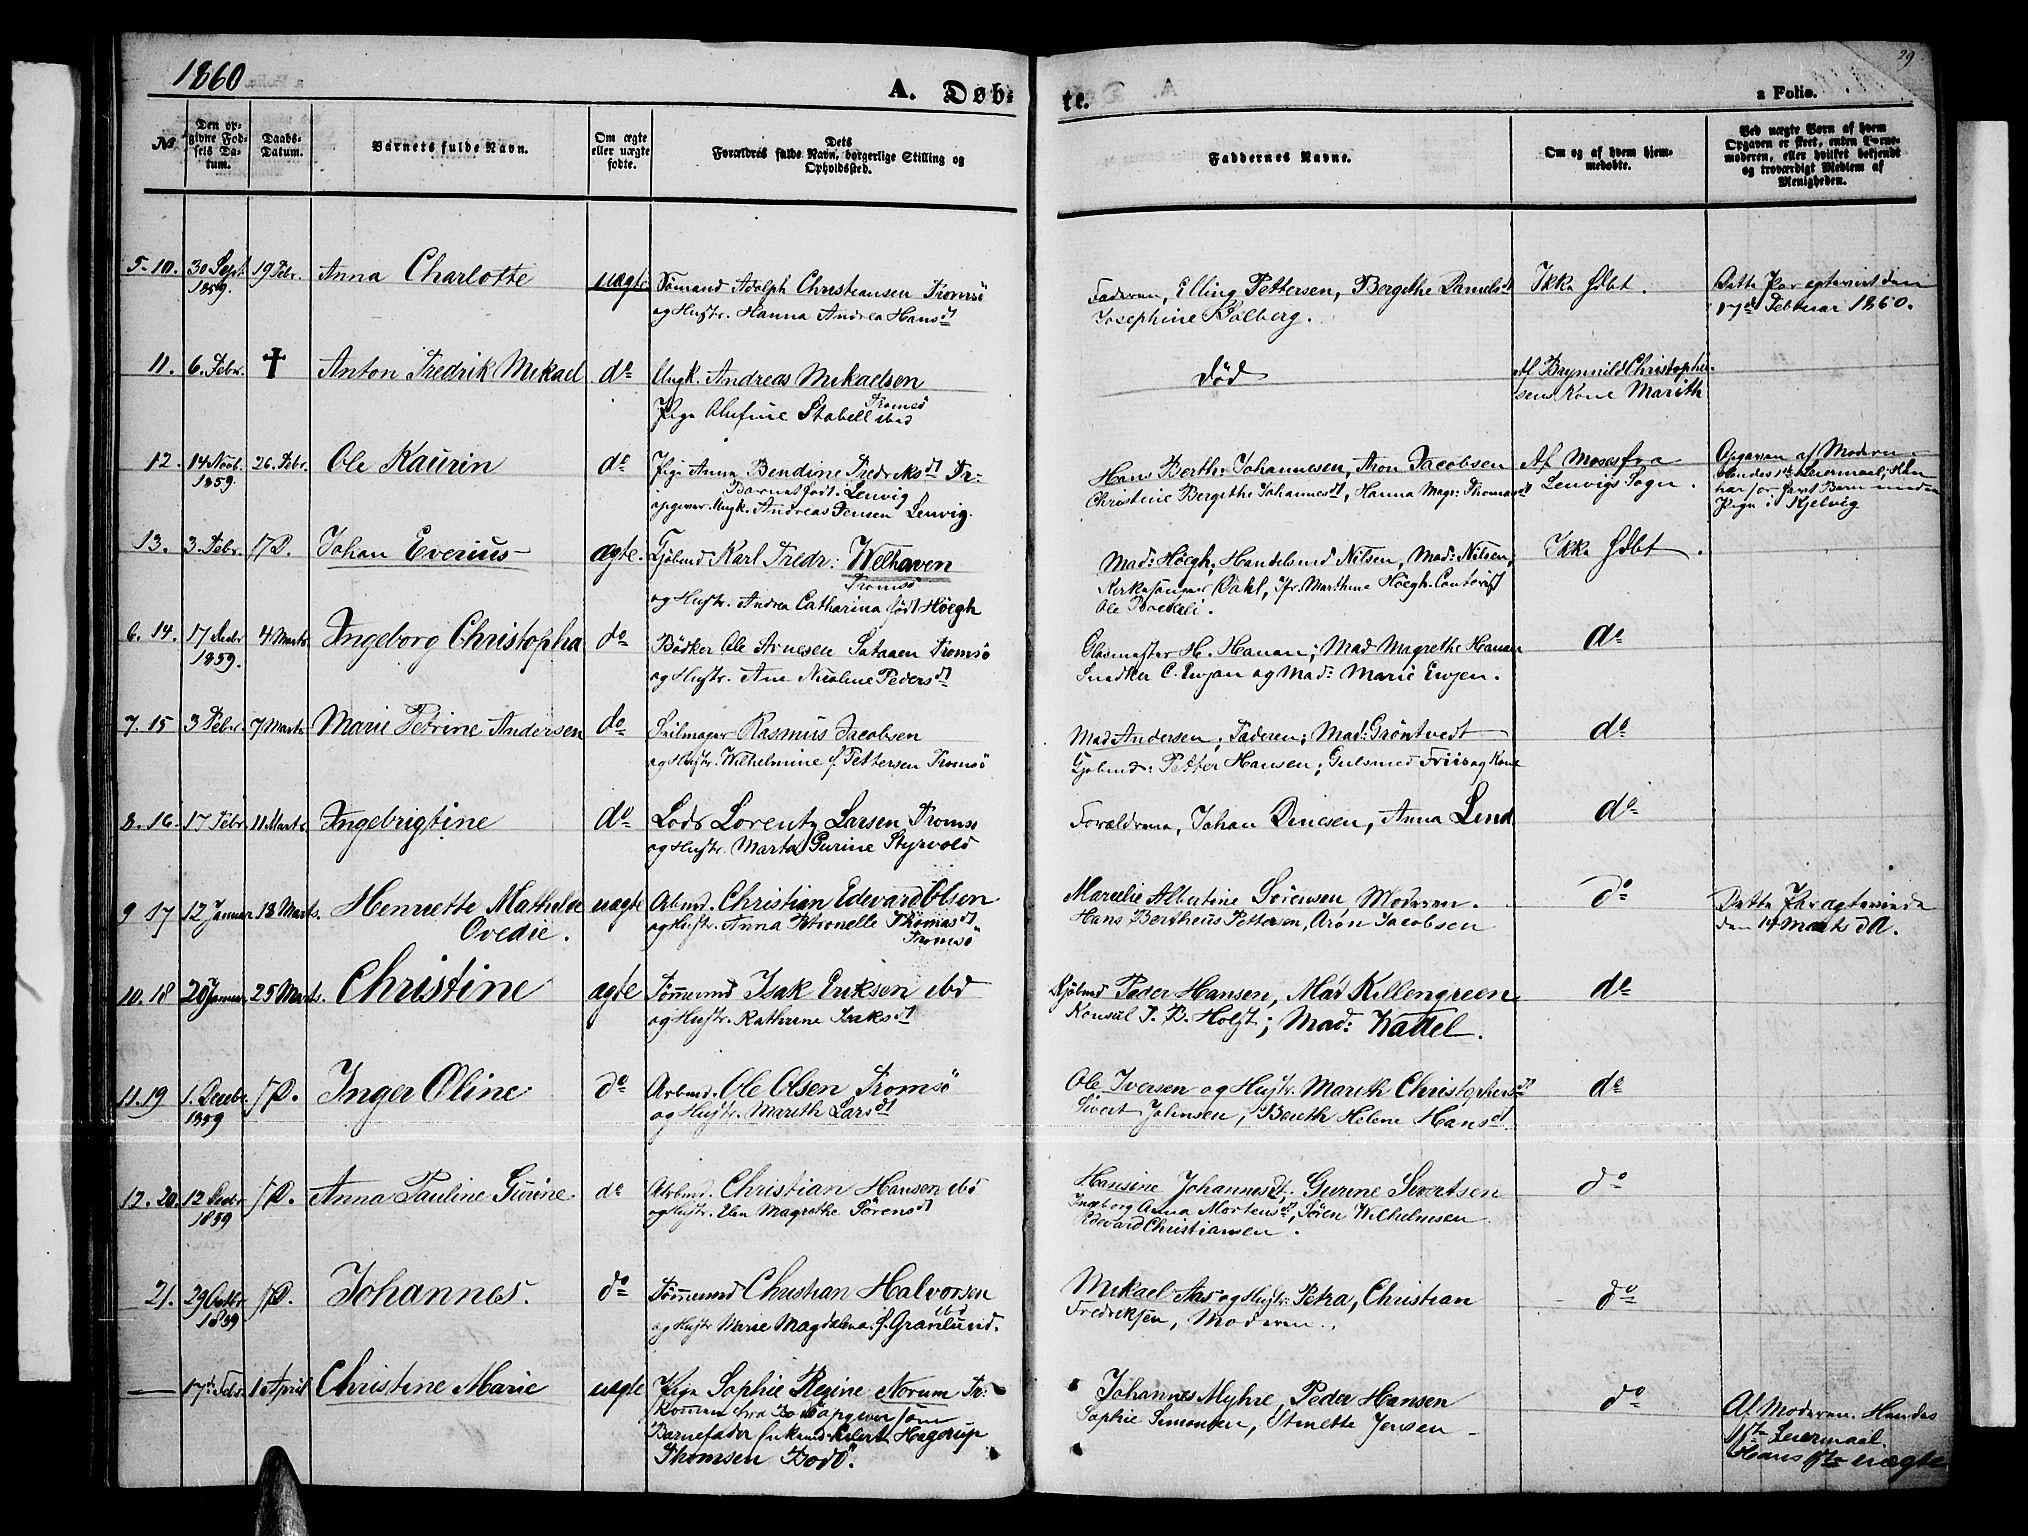 1860
A. Døb-
te.
a Folio.
29
№
Den op-
givne Fød-
sels Da-
tum.
Daabs-
Datum.
Barnets fulde Navn.
Om ægte
eller uægte
fødte.
Dets
Forældres fulde Navn, borgerlige Stilling og
Opholdssted.
Faddernes Navne.
Om og af hvem hjem-
medøbte.
Ved uægte Børn af hvem
Opgaven er skeet, enten Barne-
moderen, eller hvilket bekjendt
og troværdigt Medlem af
Menigheden.
5. 10. 30 Sept. 19 Febr. Anna Charlotte uægte Sømand Adolph Christiansen Tromsö
1859. og Hustr. Hanna Andrea Hansdt
Faderen, Elling Pettersen, Bergethe Danielsdt Ikke Hdbt. Dette Par ægteviet den
Josephine Solberg. 17d Februar 1860.
11. 6. Febr. † Anton Fredrik Mikael do Ungk. Andreas Mikaelsen
Pige Olufine Stabell Tromsö ibid
død Af Brynnild Christophe-
sens Kone Marith
12. 14 Novb. 26. Febr. Ole Kaurin do Pige Anna Bendine Fredriksdt Tr.
1859. Barnet født i Lenvig
opgiver Ungk. Andreas Jensen Lenvig.
Hans Berth: Johannesen, Aron Jacobsen Af Moses fra Opgaven af Moderen
Christine Bergithe Johannesdt, Hanna Magr: Thomasdt Lenvigs Sogn. Hendes 1te Leiermaal; Han
har før havt Barn med en
Pige i Kjelvig
13. 3. Febr. 17 D. Johan Everius ægte. Gjøbmd Karl Fredr: Welhaven
Tromsö
og Hustr. Andrea Catharina født Höegh
Mad: Höegh, Handelsmd Nilsen, Mad: Nilsen, Ikke Hdbt.
Kirkesanger Dahl, Jfr. Marthine Höegh. Contorist
Ole Bakkeli.
6. 14. 17 Decbr 4 Marts Ingeborg Christopha do Bödker Ole Arnesen Sataaen Tromsö
1859. og Hustr. Ane Nicoline Pedersdt
Glasmester H. Hanan; Mad Magrethe Hanan do
Snedker C. Evjen og Mad: Marie Evjen.
7. 15 3 Febr. 7 Marts Marie Petrine Andersen do Seilmager Rasmus Jacobsen
og Hustr. Wilhelmine f. Pettersen Tromsö
Mad Andersen, Faderen; Mad: Gröntvedt do
Gjöbmd: Petter Hansen; Gulsmed Friis og Kone
8. 16. 17 Febr. 11 Marts Ingebrigtine do Lods Lorentz Larsen Tromsö
og Hustr. Marta Gurine Styrvold
Forældrene, Johan Dinesen, Anna Lind do
9 17 12 Januar 18 Marts. Henriette Mathilde uægte Arbmd. Christian Edevard Olsen
Ovedie. og Hustr. Anna Petronelle Thomasdt
Tromsö
Marelie Albertine Sörensen Moderen. do Dette Par ægteviede
Hans Bertheus Pettersen, Arön Jacobsen den 14 Marts d A.
10. 18 20 Januar. 25 Marts. Christine ægte Tömmermd Isak Eriksen ibd
og Hustr. Kathrine Isaksdt
Gjöbmd Peder Hansen, Mad Killengreen do
Konsul J. B. Holst; Mad: Kattel.
11. 19 1. Decbr. 17 D. Inger Oline do Arbmd. Ole Olsen Tromsö
1859 og Hustr. Marith Larsdt
Ole Iversen og Hustr. Marith Christophersdt do
Sivert Johnsen, Bereth Helene Hansdt.
12. 20. 12 Decbr 17 D. Anna Pauline Gurine do Arbmd. Christian Hansen ibd
1859 og Hustr. Elen Magrethe Sörensdt
Hansine Johannesdt, Gurine Sivertsen do
Ingeborg Anna Mortensdt, Sören Wilhelmsen
Edevard Christiansen.
21. 29 Octbr 17 D. Johannes. do Tömmermd Christian Halvorsen
1859 ibd
og Hustr Marie Magdalena f. Granlund.
Mikael Aas og Hustr: Petra, Christian do
Fredriksen, Moderen.
— 17de Febr. 1 April Christine Marie uægte Pige Sophie Regine Norum Tr:
kommen fra Bodö opgiver som
Barnefader Eilert Hagerup
Thomsen Bodö.
Johannes Myhre, Peder Hansen do
Sophie Simonsen, Jensen
Af Moderen. Hendes
1te Leiermaal.
Hans 1te uægte